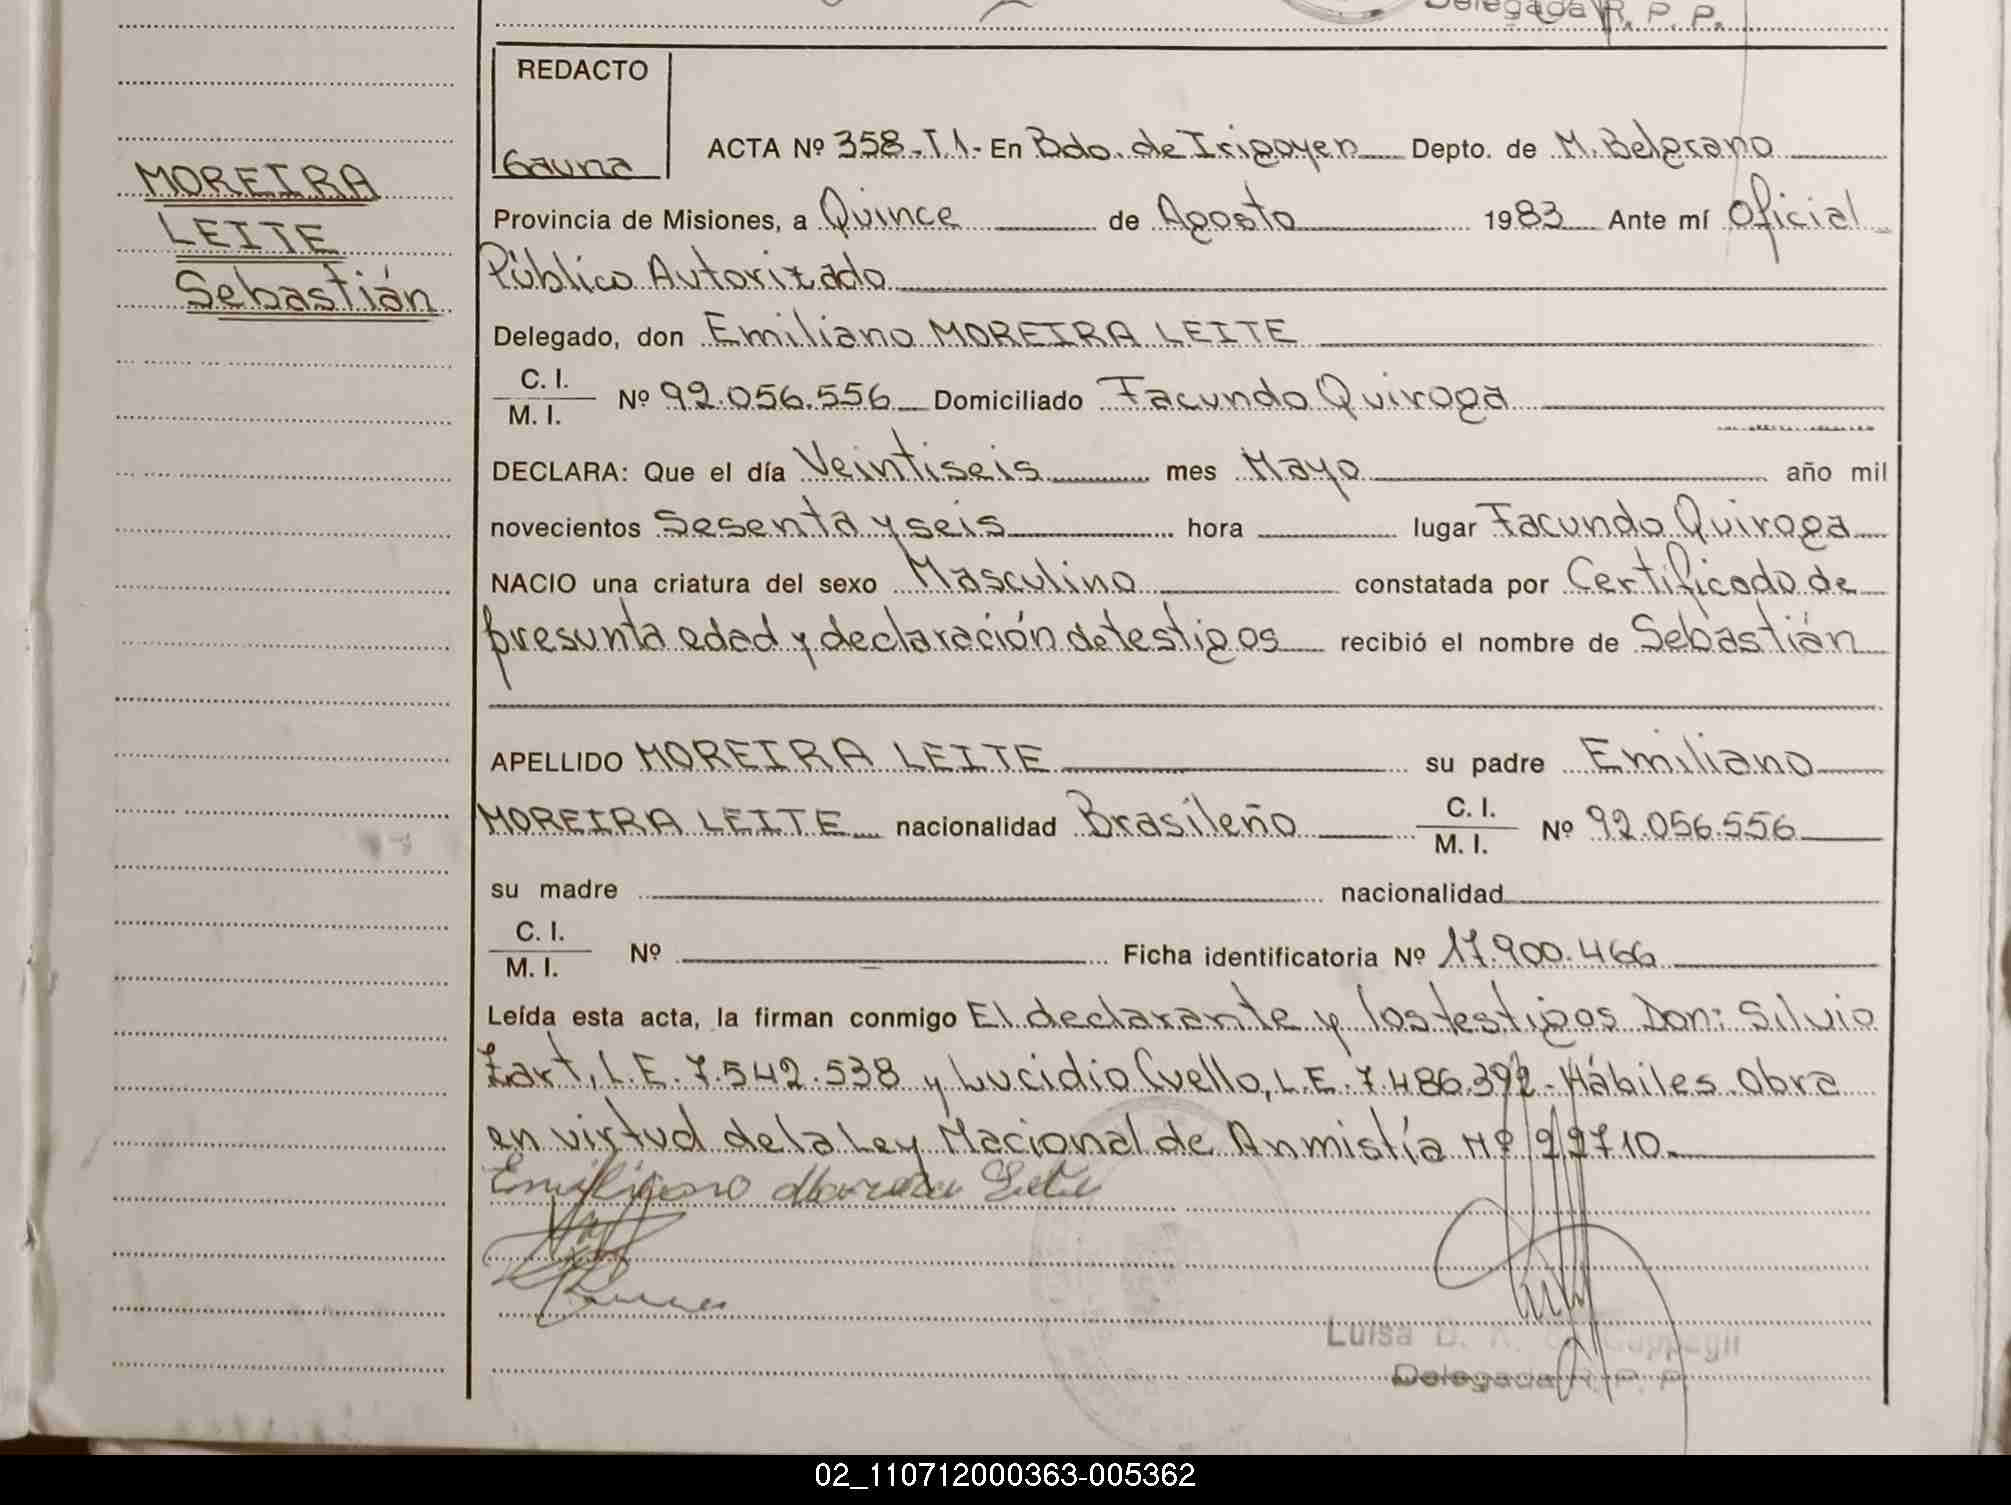 Delegada R. P. P.
REDACTO
Gauna
ACTA Nº 358-T.1.- En Bdo. de Irigoyen Depto. de M. Belgrano
MOREIRA
LEITE
Sebastián
Provincia de Misiones, a Quince de Agosto 1983 Ante mí Oficial
Público Autorizado
Delegado, don Emiliano MOREIRA LEITE
C. I.
M. I. Nº 92.056.556 Domiciliado Facundo Quiroga
DECLARA: Que el día Veintiseis mes Mayo año mil
novecientos Sesenta y seis hora lugar Facundo Quiroga
NACIO una criatura del sexo Masculino constatada por Certificado de
presunta edad y declaración de testigos recibió el nombre de Sebastián
APELLIDO MOREIRA LEITE su padre Emiliano
MOREIRA LEITE nacionalidad Brasileño C. I. M. I. Nº 92.056.556
su madre nacionalidad
C. I.
M. I. Nº Ficha identificatoria Nº 17.900.466
Leída esta acta, la firman conmigo El declarante y los testigos Don: Silvio
Zart, L.E. 7.542.538 y Lucidio Cuello, L.E. 7.486.392- Hábiles. Obra
en virtud de la Ley Nacional de Anmistía Nº 22710.
Emiliano Moreira Leite
Luisa D.
Delegada R. P. P.
02_110712000363-005362